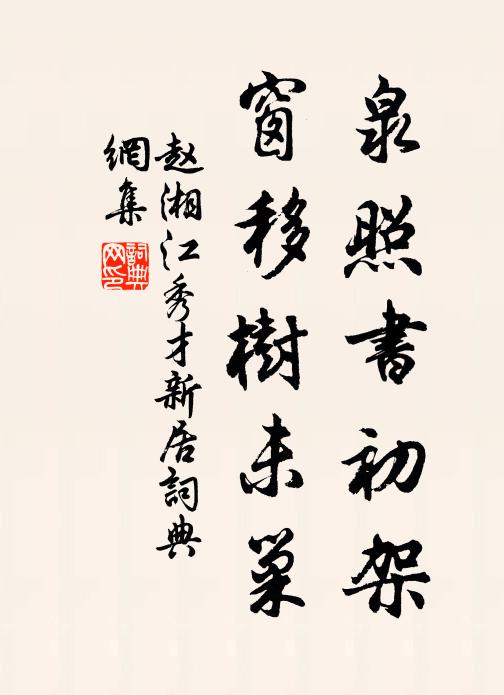 泉照書初架
窗移樹未巢
赵湘江秀才新居詞典
網集
詞典
网印